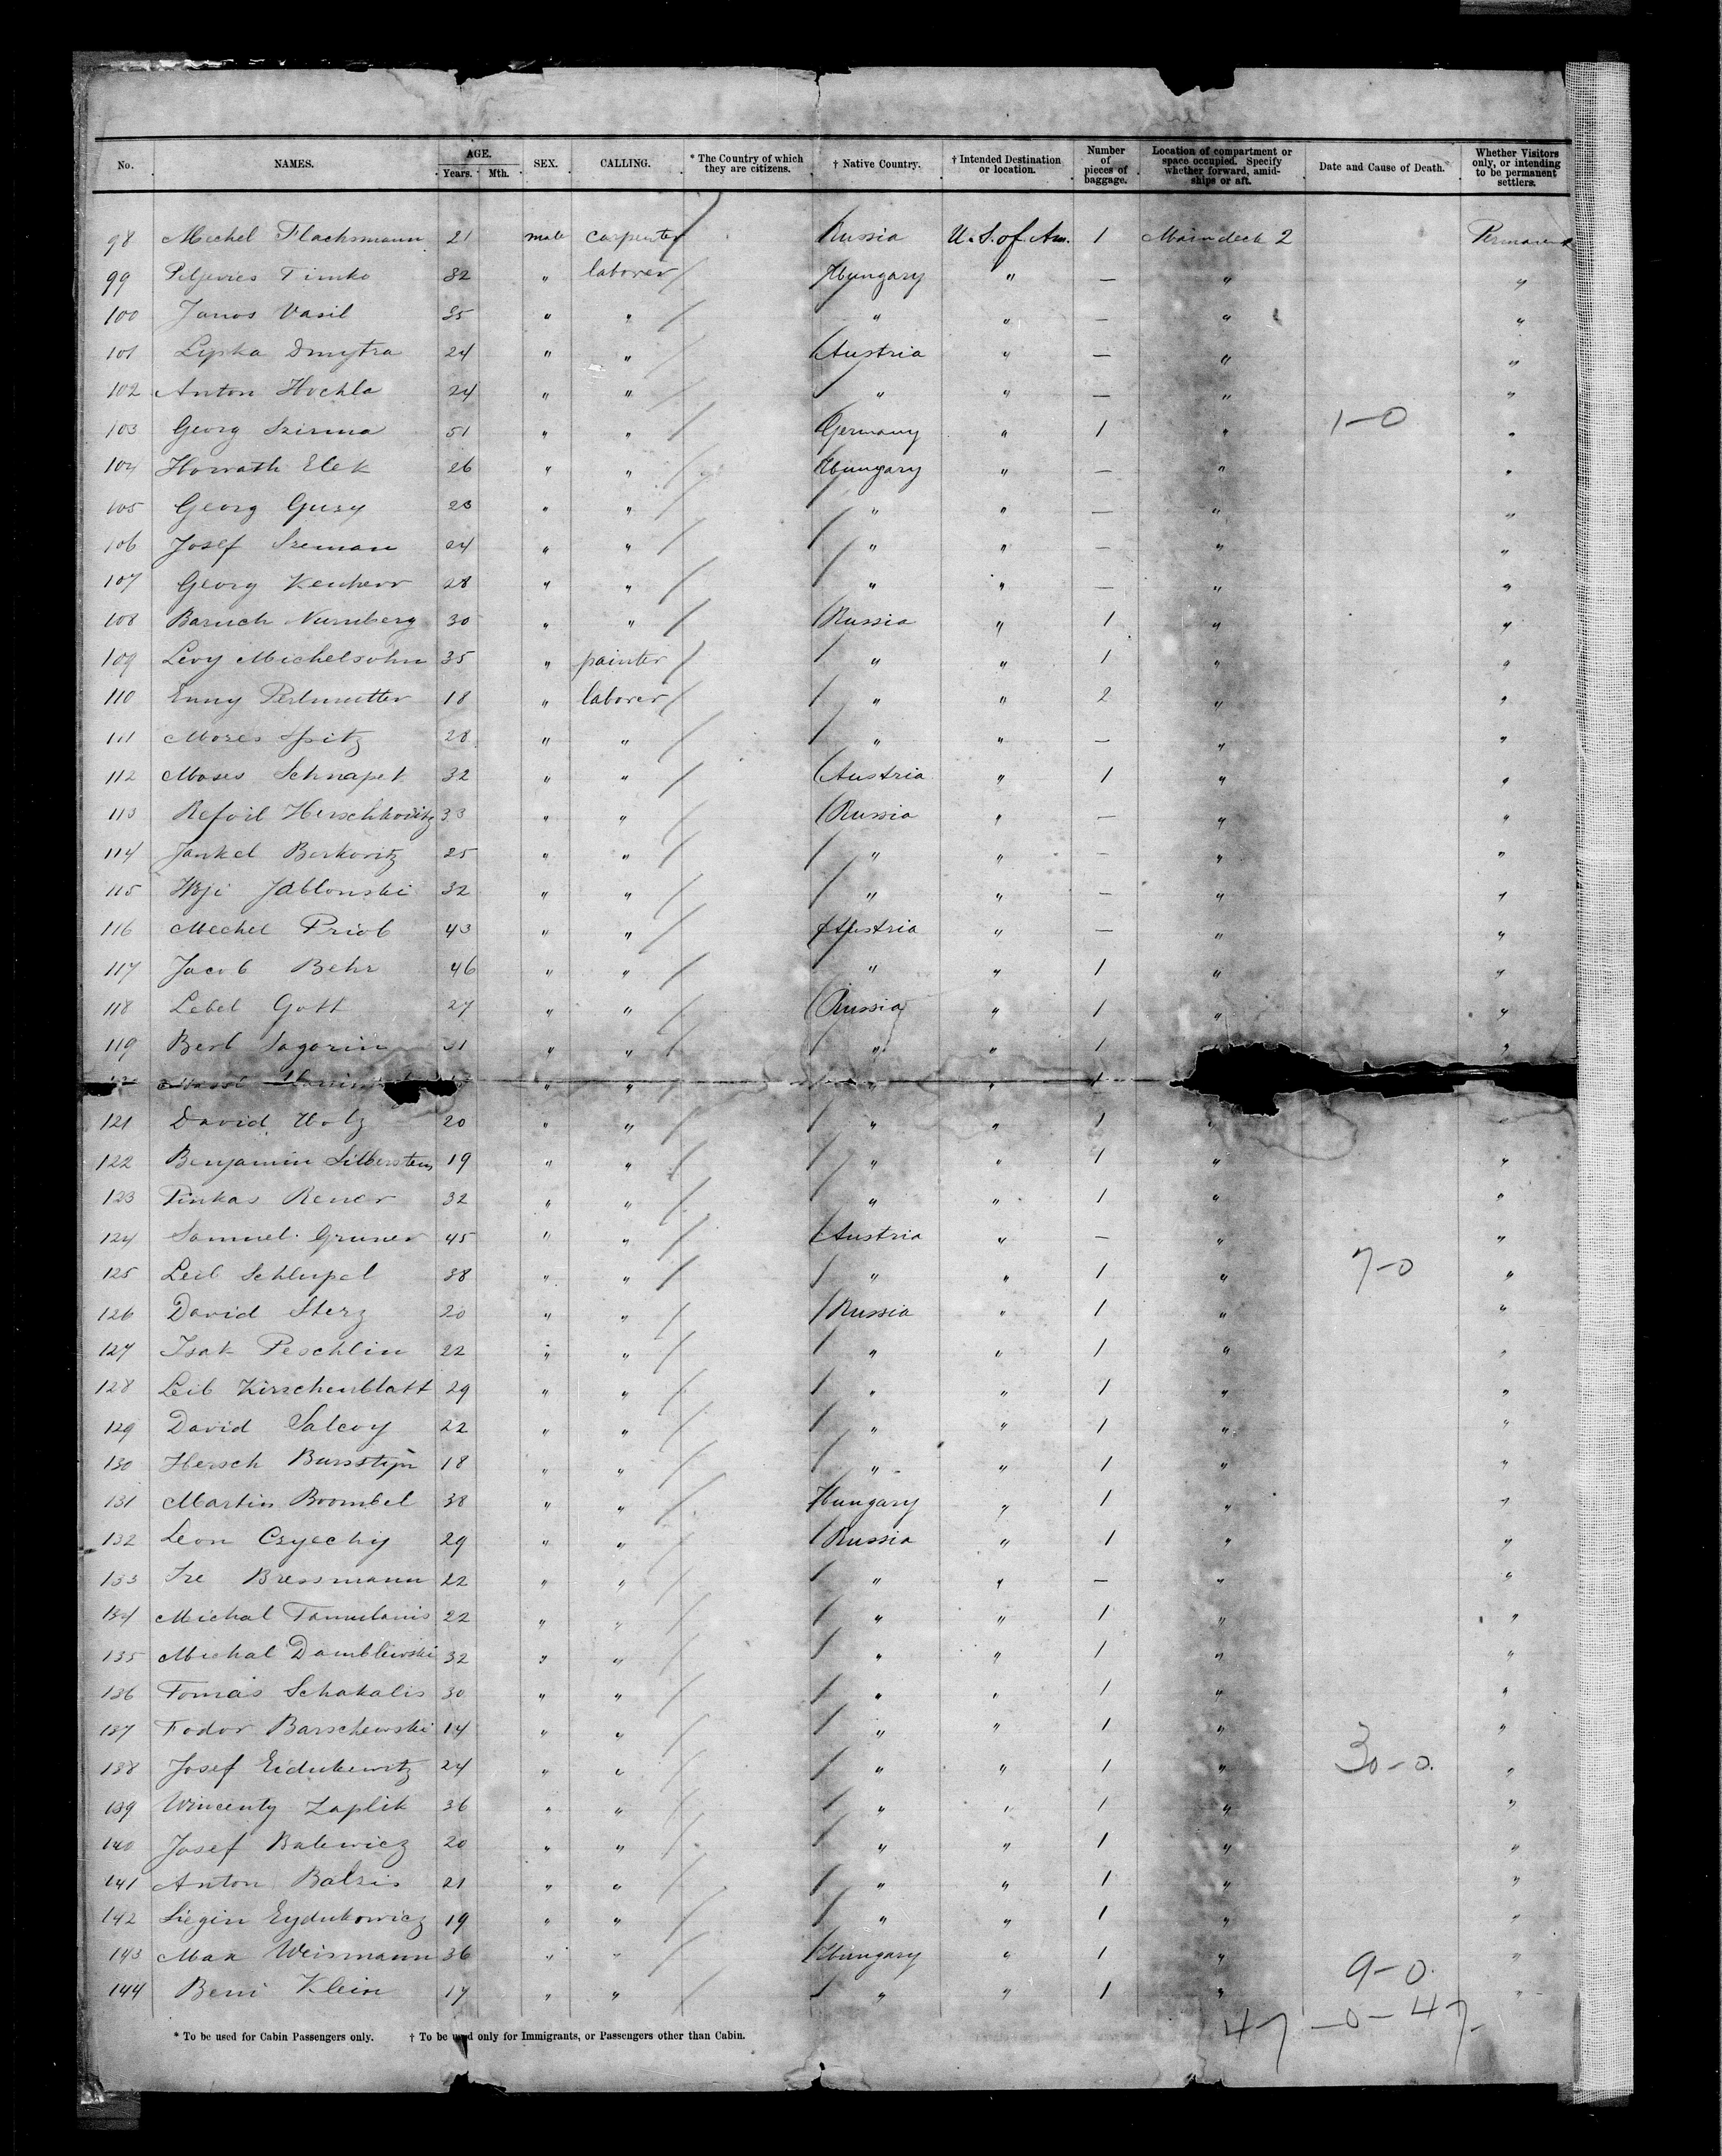 No. NAMES. AGE. Years. Mth. SEX. CALLING. * The Country of which they are citizens. † Native Country. † Intended Destination or location. Number of pieces of baggage. Location of compartment or space occupied. Specify whether forward, amidships or aft. Date and Cause of Death. Whether Visitors only, or intending to be permanent settlers.
98 Mechel Flachsmann 21 male carpenter / Russia U.S. of Am. 1 Maindeck 2
99 Timko 32 " laborer / Hungary " — " "
100 Janos Vasil 35 " " / " " — " "
101 Lypka Dmytra 24 " " / Austria " — " "
102 Anton Hochla 24 " " / " " — " "
103 Georg Szirma 51 " " / Germany " 1 " 1-0 "
104 Horvath Elek 26 " " / Hungary " — " "
105 Georg 23 " " / " " — " "
106 Josef Szeman 24 " " / " " — " "
107 Georg 28 " " / " " — " "
108 Baruch Nurnberg 30 " " / Russia " 1 " "
109 Levy Michelsohn 35 " painter / " " 1 " "
110 Perlmutter 18 " laborer / " " 2 " "
111 Moses Spitz 28 " " / " " — " "
112 Moses Schnapek 32 " " / Austria " 1 " "
113 Refoil Herschkovitz 33 " " / Russia " — " "
114 Jankel Berkovitz 25 " " / " " — " "
115 Jablonski 32 " " / " " — " "
116 Mechel Priob 43 " " / Austria " — " "
117 Jacob Behr 46 " " / " " 1 " "
118 Lebel Gott 27 " " / Russia " 1 " "
119 Berl Sagorin " " / " " 1 "
" " " " 1
121 David Holz 20 " " / " " 1 " "
122 Benjamin Silberstein 19 " " / " " 1 " "
123 Pinkas Rener 32 " " / " " 1 " "
124 Samuel Gruner 45 " " / Austria " — " "
125 Leib Schlupel 38 " " / " " 1 " 7-0 "
126 David Sterz 20 " " / Russia " 1 " "
127 Isak Peschlin 22 " " / " " 1 " "
128 Leib Kirschenblatt 29 " " / " " 1 " "
129 David Salcoy 22 " " / " " 1 " "
130 Hersch Bursstyn 18 " " / " " 1 " "
131 Martin Boombel 38 " " / Hungary " 1 " "
132 Leon Czyechy 29 " " / Russia " 1 " "
133 Bressmann 22 " " / " " — " "
134 Michal 22 " " / " " 1 " "
135 Michal Damblewski 32 " " / " " 1 " "
136 Tomas Schakalis 30 " " / " " 1 " "
137 Fodor Barschewski 14 " " / " " 1 " "
138 Josef Eidukewitz 24 " " / " " 1 " 30-0. "
139 Wincenty Zaplik 36 " " / " " 1 " "
140 Josef Balewicz 20 " " / " " 1 " "
141 Anton Balsis 21 " " / " " 1 " "
142 Eydukowicz 19 " " / " " 1 " "
143 Max Weismann 36 " " / Hungary " 1 " "
144 Beni Klein 17 " " / " " 1 " 9-0. "
47-0-47-
* To be used for Cabin Passengers only. † To be used only for Immigrants, or Passengers other than Cabin.